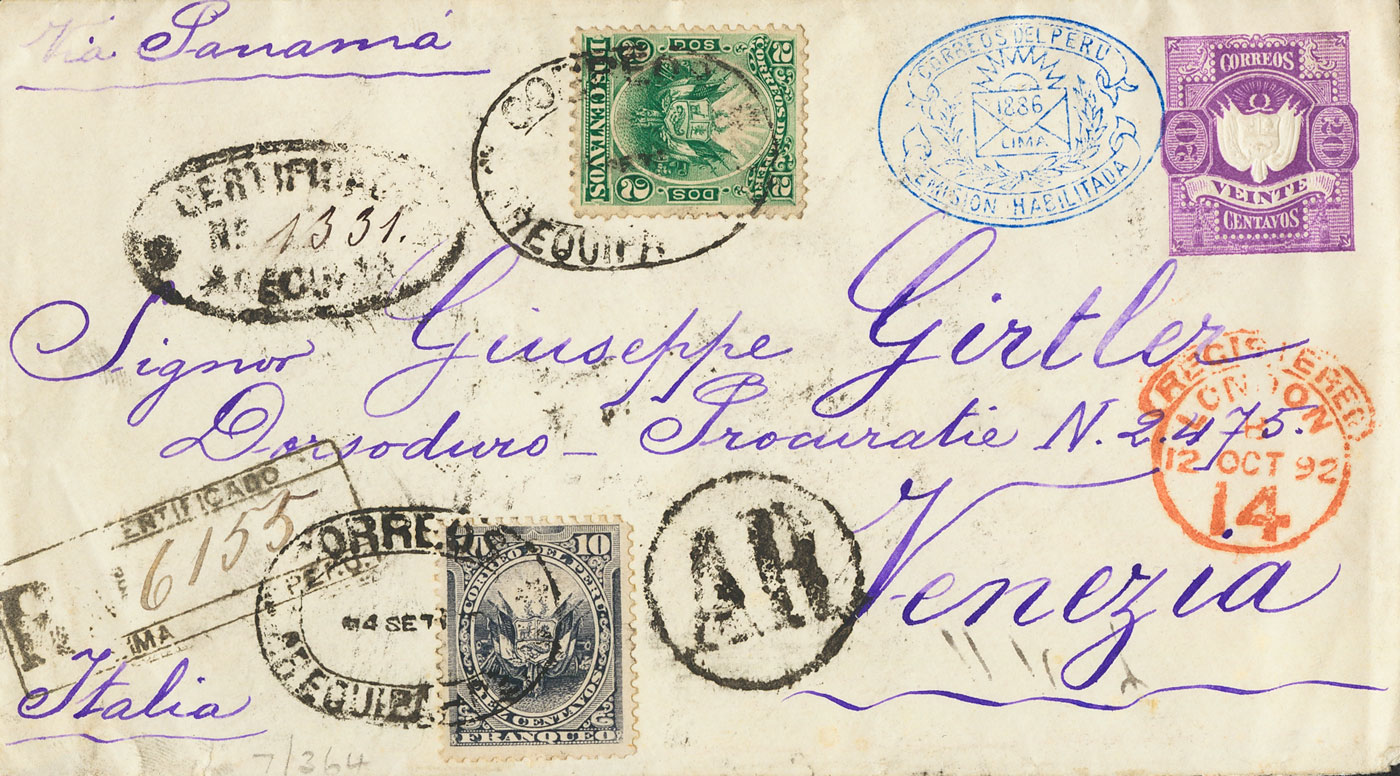 Via Panamá
CORREOS DEL PERU
1886
LIMA
EMISION HABILITADA
CORREOS
20 20
VEINTE
CENTAVOS
2 DOS 2
CORREOS DEL PERU
DIEZ CENTAVOS
2 DOS 2
AREQUIPA
CERTIFICADO
No. 1331.
AREQUIPA
Signor Giuseppe Girtler
Dorsoduro - Procuratie N. 2.475.
Venezia
Italia
REGISTERED
LONDON
12 OCT 92
14
CERTIFICADO
6155
PERU
R LIMA
CORREOS
SET
AREQUIPA
10
CORREO DEL PERU
DIEZ CENTAVOS
10
FRANQUEO
AR
7/364